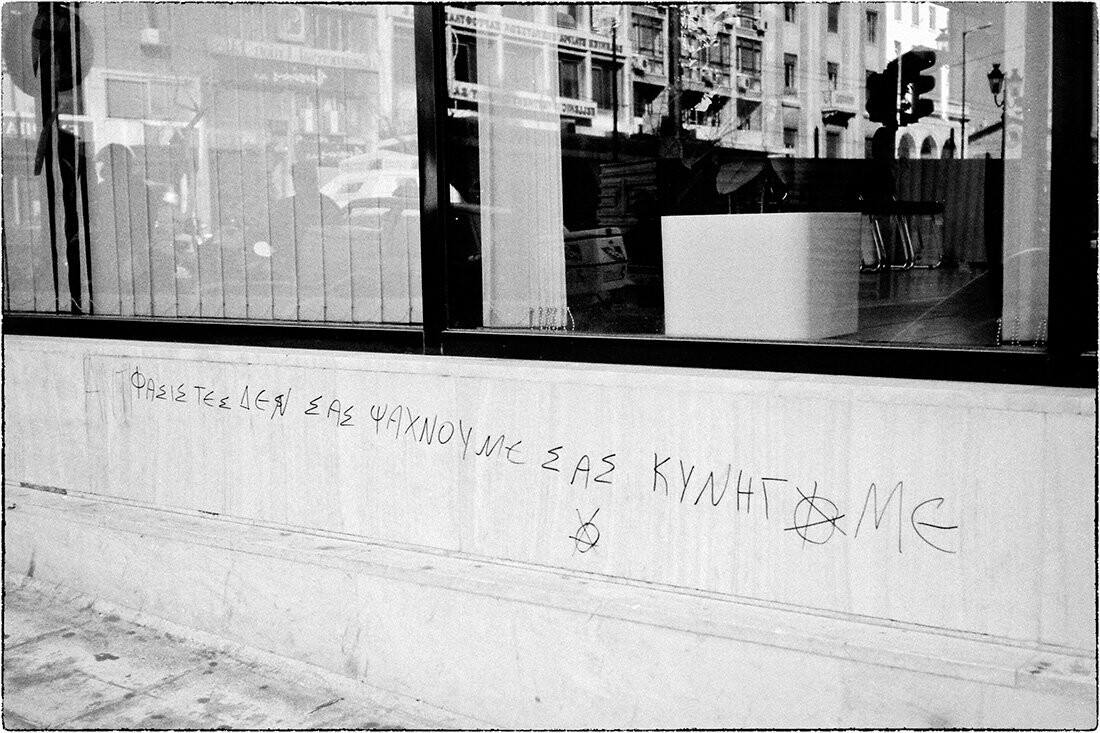 ΦΑΣΙΣΤΕΣ ΔΕΝ ΣΑΣ ΨΑΧΝΟΥΜΕ ΣΑΣ ΚΥΝΗΓΑΜΕ